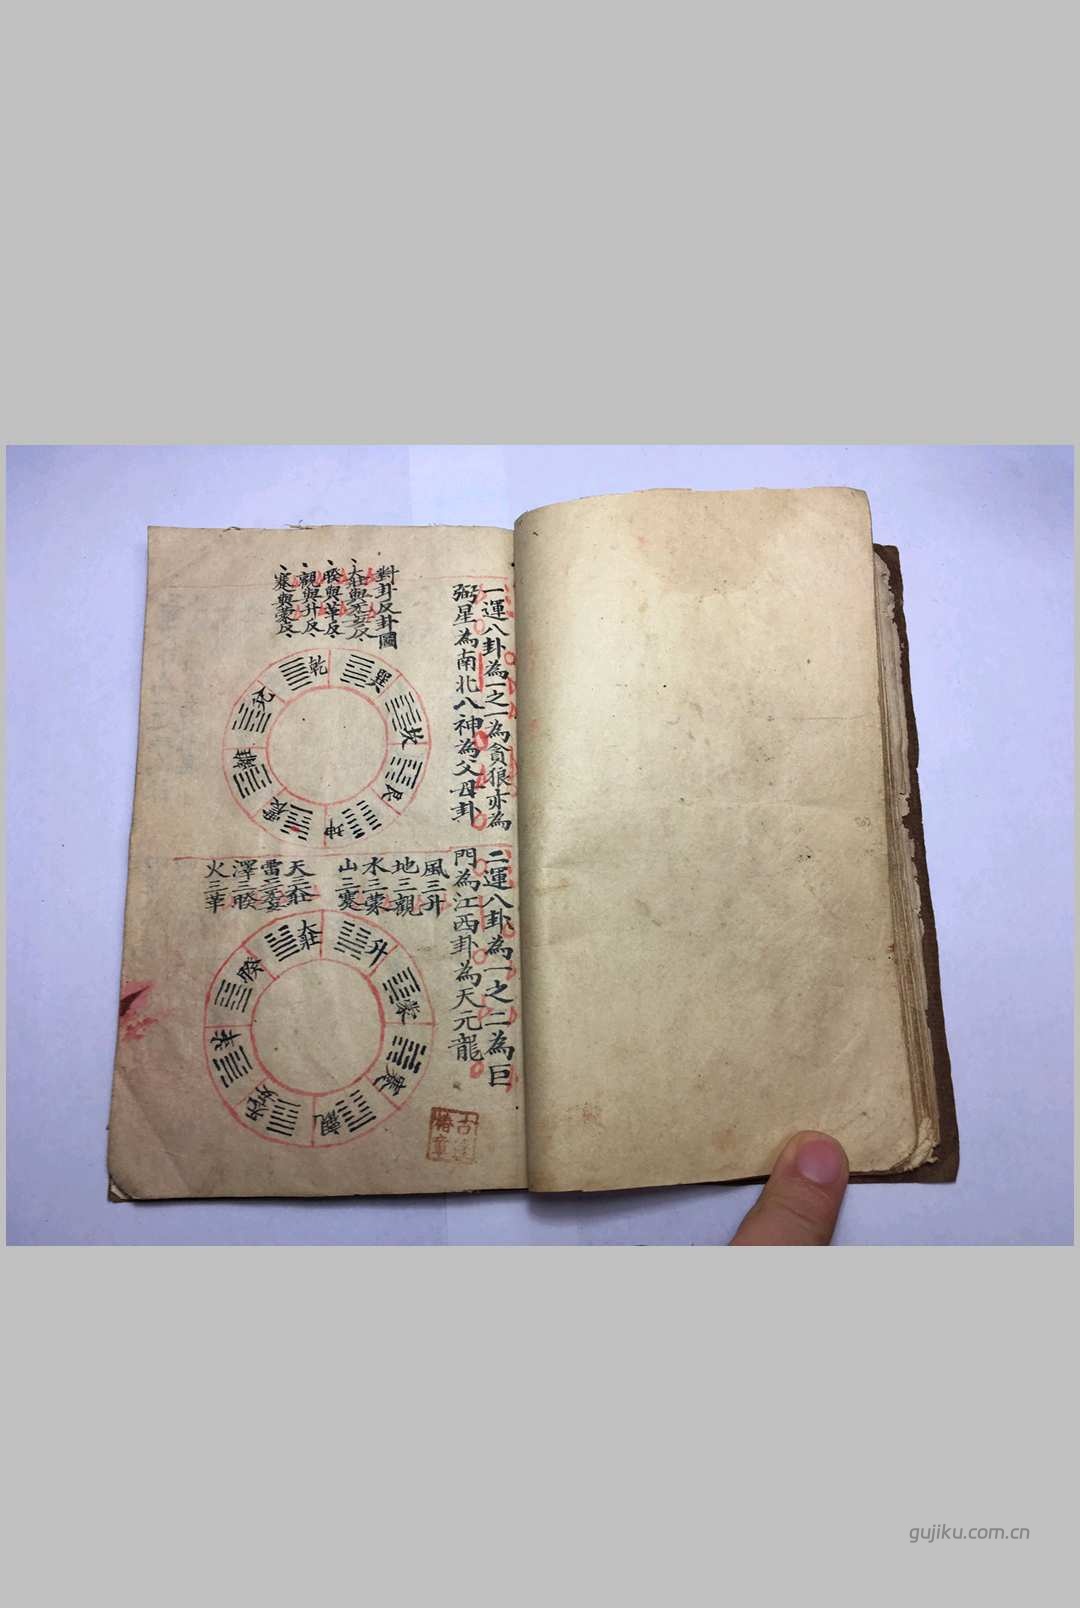 一運八卦為一之一為貪狼亦為
弼星為南北八神為父母卦
對卦反卦圖
大壯與无妄反
睽與革反
觀與升反
蹇與蒙反
乾
巽
坎
艮
坤
震
離
兌
二運八卦為一之二為巨
門為江西卦為天元龍
風三升
地三觀
水三蒙
山三蹇
天三壯
雷三无妄
澤三睽
火三革
大壯
升
蒙
蹇
觀
无妄
革
睽
gujiku.com.cn